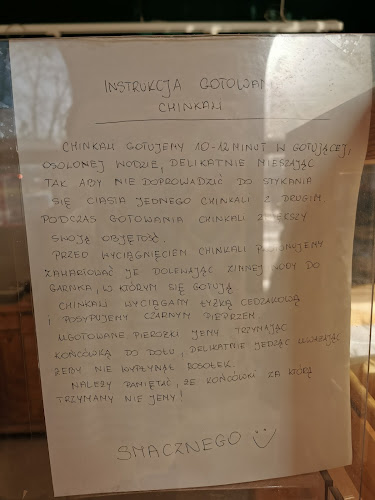 INSTRUKCJA GOTOWANI
CHINKALI
CHINKALI GOTUJEMY 10-12 MINUT W GOTUJĄCEJ,
OSOLONEJ WODZIE, DELIKATNIE MIESZAJĄC
TAK ABY NIE DOPROWADZIĆ DO STYKANIA
SIĘ CIASTA JEDNEGO CHINKALI Z DRUGIM,
PODCZAS GOTOWANIA CHINKALI ZWIĘKSZY
SWOJĄ OBJĘTOŚĆ.
PRZED WYCIĄGNIĘCIEM CHINKALI POWINNIŚMY
ZAHARTOWAĆ JE DOLEWAJĄC ZIMNEJ WODY DO
GARNKA, W KTÓRYM SIĘ GOTUJĄ
CHINKALI WYCIĄGAMY ŁYŻKĄ CEDZAKOWĄ
I POSYPUJEMY CZARNYM PIEPRZEM.
UGOTOWANE PIEROŻKI JEMY TRZYMAJĄC
KOŃCÓWKĄ DO DOŁU, DELIKATNIE JEDZĄC UWAŻAJĄC
ŻEBY NIE WYPŁYNĄŁ ROSOŁEK.
NALEŻY PAMIĘTAĆ, ŻE KOŃCÓWKI ZA KTÓRĄ
TRZYMAMY NIE JEMY!
SMACZNEGO